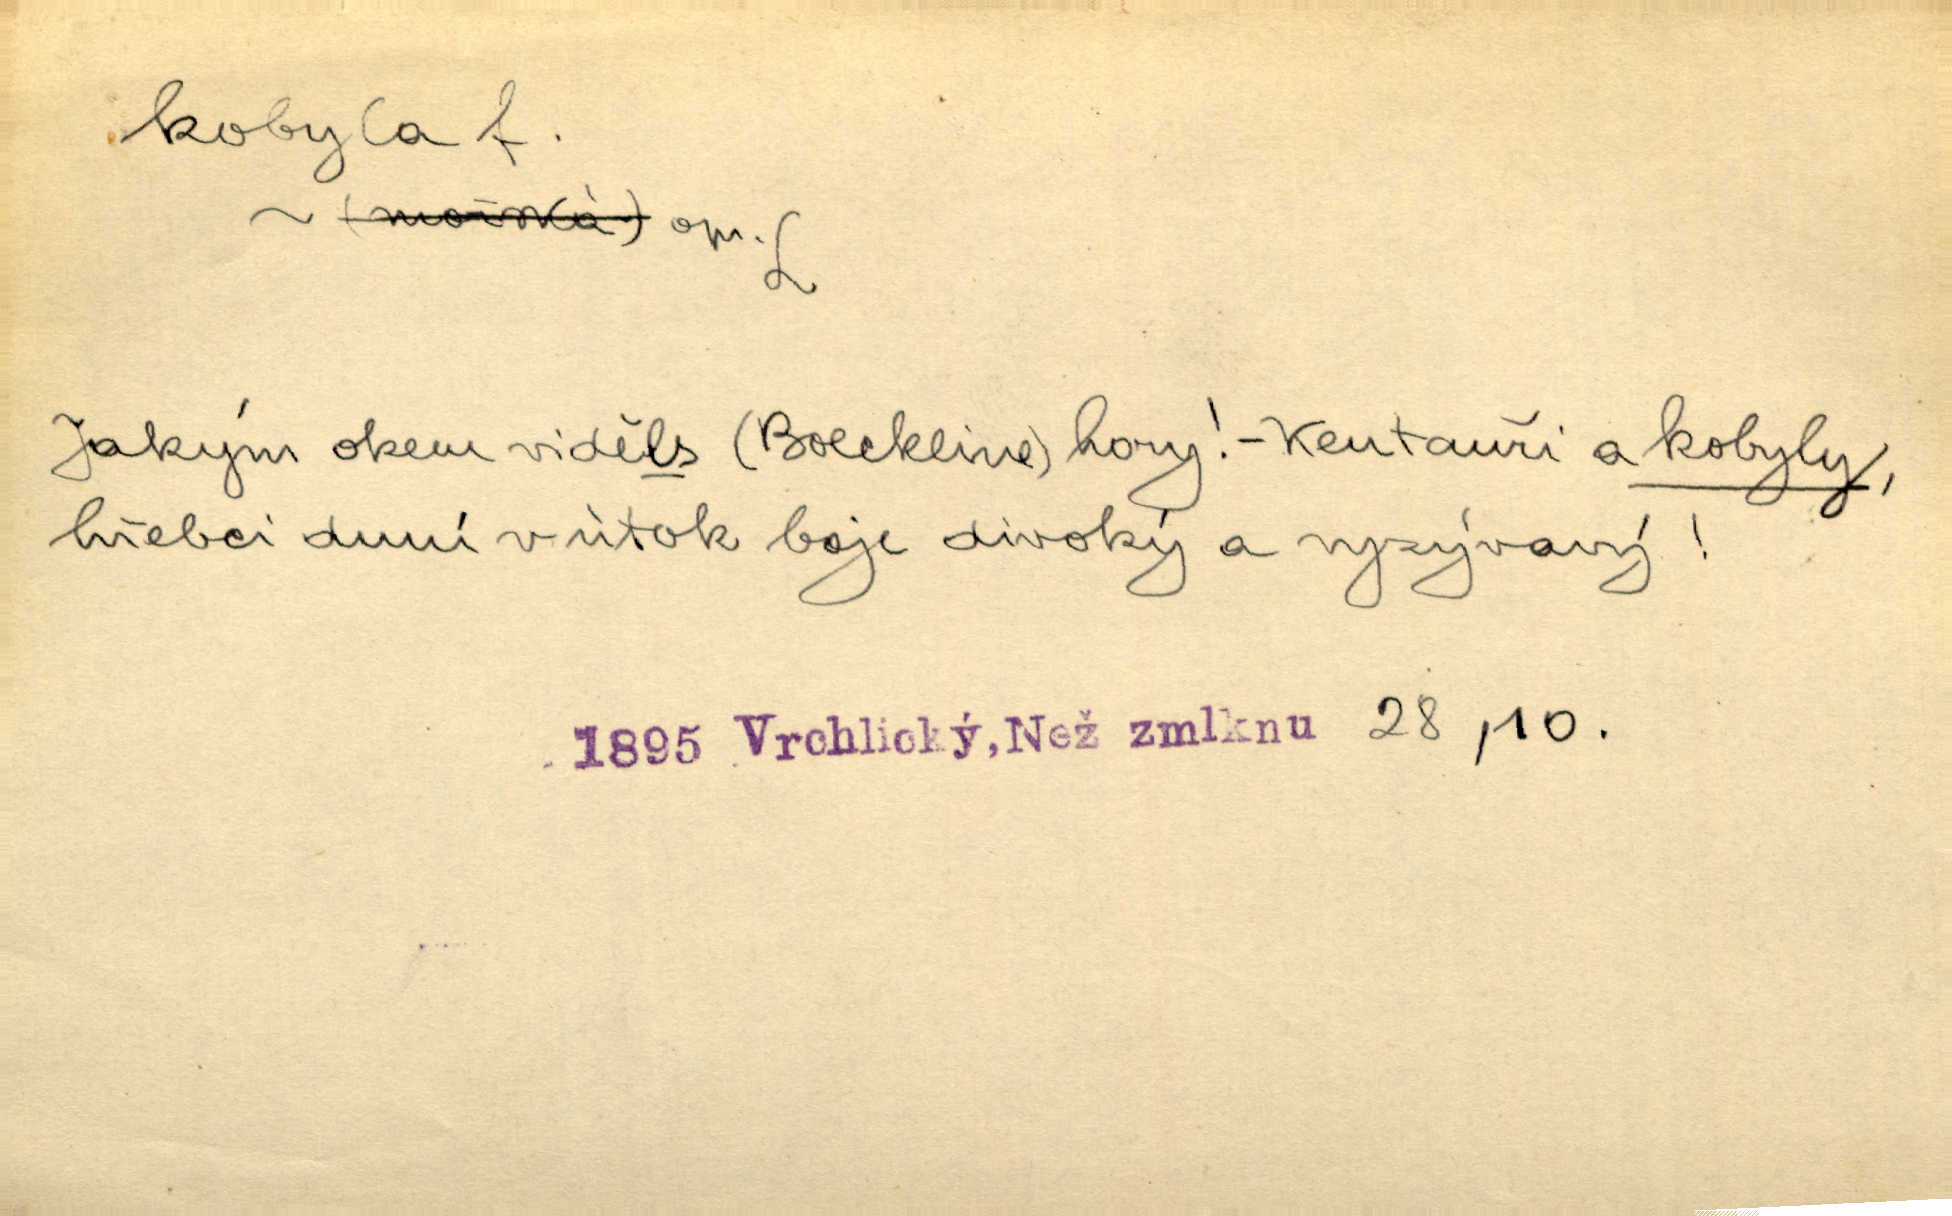 kobyla f.
~ (mořská) opr.
Jakým okem viděls (Boeckline) hory! – Kentauři a kobyly,
hřebci duní v útok boje divoký a vyzývavý!
1895 Vrchlický, Než zmlknu 28, 10.